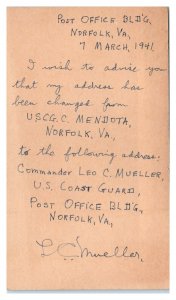 POST OFFICE BLD'G,
NORFOLK, VA,
7 MARCH, 1941.
I wish to advise you
that my address has
been changed from
USCG.C. MENDOTA,
NORFOLK, VA,
to the following address:
COMMANDER LEO C. MUELLER,
U.S. COAST GUARD,
POST OFFICE BLD'G,
NORFOLK, VA,
L C Mueller.